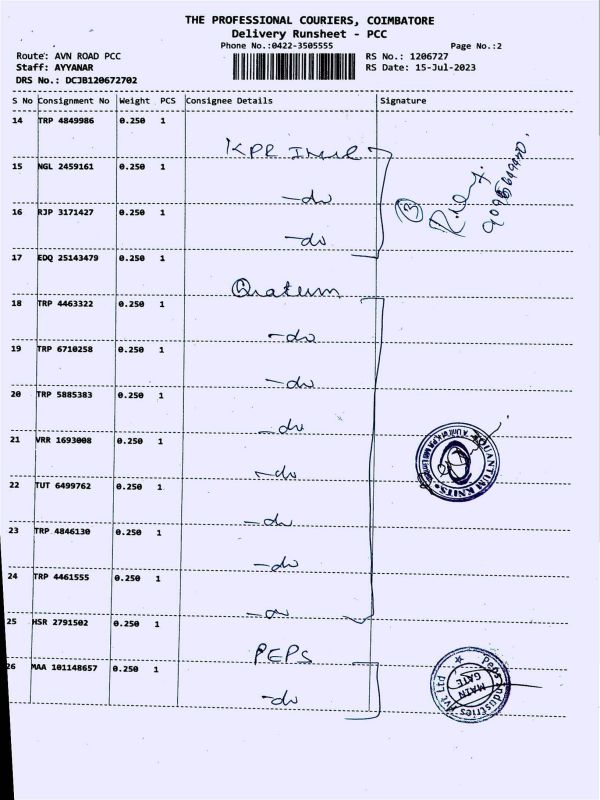 THE PROFESSIONAL COURIERS, COIMBATORE
Delivery Runsheet - PCC
Phone No.:0422-3505555
Page No.:2
Route: AVN ROAD PCC
RS No.: 1206727
Staff: AYYANAR
RS Date: 15-Jul-2023
DRS No.: DCJB120672702
S No Consignment No Weight PCS Consignee Details Signature
14 TRP 4849986 0.250 1
KPR
15 NGL 2459161 0.250 1
-do
16 RJP 3171427 0.250 1
-do
3
17 EDQ 25143479 0.250 1
Quatum
18 TRP 4463322 0.250 1
-do
19 TRP 6710258 0.250 1
-do
20 TRP 5885383 0.250 1
-do
21 VRR 1693008 0.250 1
-do
QUANTUM KNITS
22 TUT 6499762 0.250 1
-do
23 TRP 4846130 0.250 1
-do
24 TRP 4461555 0.250 1
-do
25 HSR 2791502 0.250 1
PEPS
26 MAA 101148657 0.250 1
-do
Peps Industries Pvt Ltd
MAIN
GATE